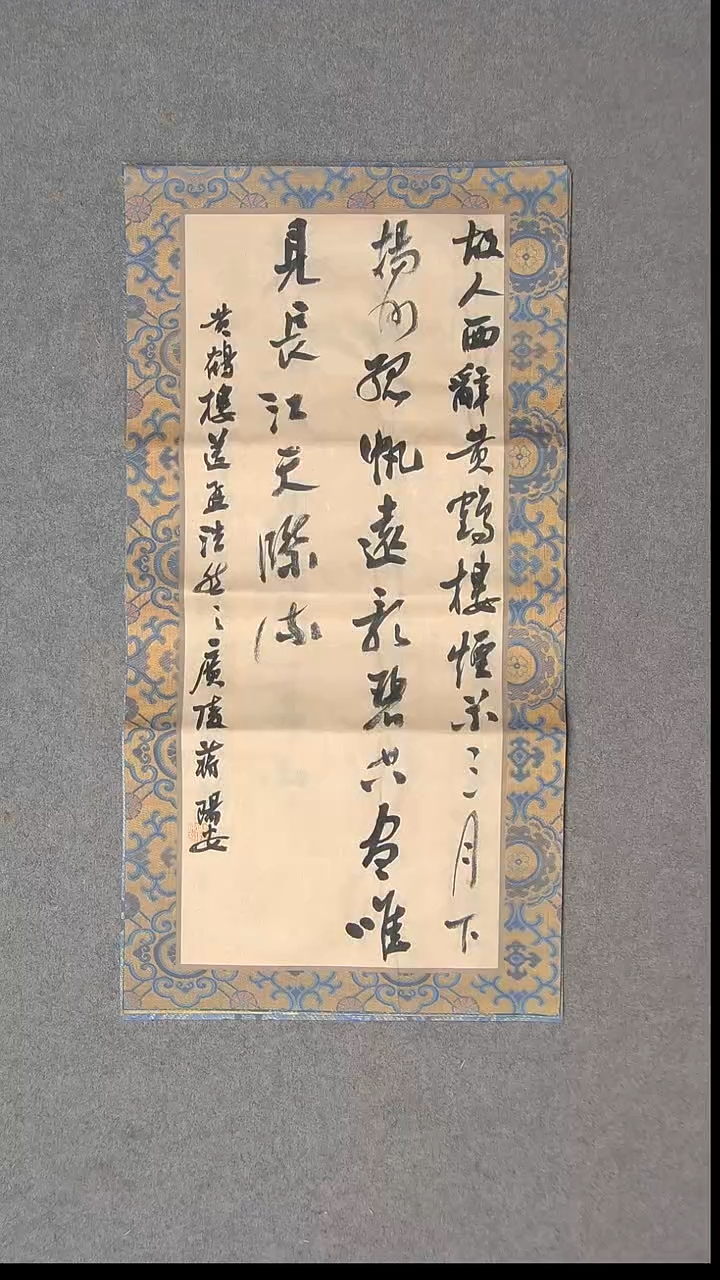 故人西辭黄鶴樓煙花三月下
揚州孤帆遠影碧空盡唯
見長江天際流
黄鶴樓送孟浩然之廣陵 蔣陽安